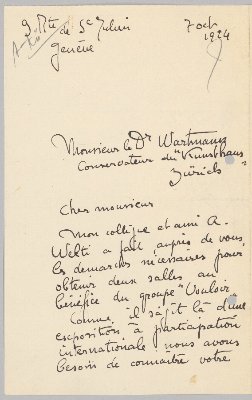 9 Rte de St Julien
Genève
7 oct
1924
Monsieur le Dr Wartmann
Conservateur du "Kunsthaus"
Zürich
Cher monsieur
Mon collègue et ami A.
Welti a fait auprès de vous
les démarches nécessaires pour
obtenir deux salles au
bénéfice du groupe "Vouloir"
Comme il s'agit là d'une
exposition à participation
internationale nous avons
besoin de connaître votre